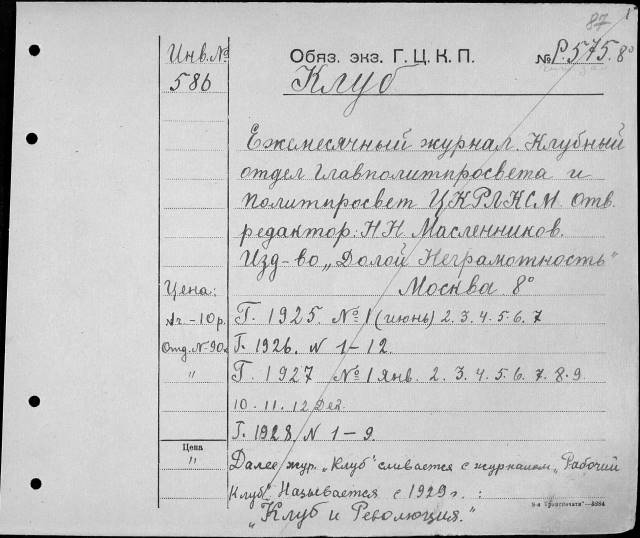 87 1
Инв. № Обяз. экз. Г. Ц. К. П. № Р. 575. 8°
586 Клуб
Ежемесячный журнал. Клубный
отдел Главполитпросвета и
Политпросвет ЦКРЛКСМ. Отв.
редактор: Н Н Масленников.
Изд-во „Долой Неграмотность"
Москва 8°
Цена:
– 10 р. Г. 1925. № 1 (июнь) 2. 3. 4. 5. 6. 7
Отд. № 90к Г. 1926. N 1–12.
" Г. 1927 № 1 Янв. 2. 3. 4. 5. 6. 7. 8. 9.
10. 11. 12 Дек.
Г. 1928. N 1–9.
Цена
" Далее жур. „Клуб" сливается с журналом „Рабочий
Клуб". Называется с 1929 г. :
„Клуб и Революция."